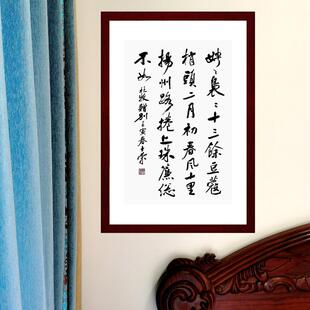 娉〻裊〻十三餘豆蔻
梢頭二月初春風十里
揚州路捲上珠簾總
不如 杜牧贈别 壬寅春